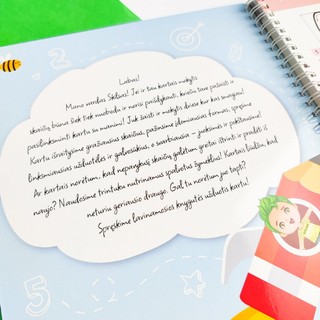 Labas!
Mano vardas Skilvas! Jei ir tau kartais mokytis
skaičių būna šiek tiek nuobodu ir norisi pasilinksminti, kviečiu tave pažaisti ir
pasilinksminti kartu su manimi! Juk žaisti ir mokytis drauge kur kas smagiau!
Kartu išraitysime gražiausius skaičius, pažinsime įdomiausias formas, spręsime
linksmiausias užduotėles ir galvosūkius, o svarbiausia – juoksimės ir pokštausime!
Ar kartais norėtum, kad nepavykusį skaičių galėtum greitai ištrinti ir pradėti iš
naujo? Naudosime trintuku nutrinamus spalvotus žymeklius! Kartais liūdžiu, kad
neturiu geriausio draugo. Gal tu norėtum juo tapti?
Spręskime lavinamosios knygutės užduotis kartu!
5